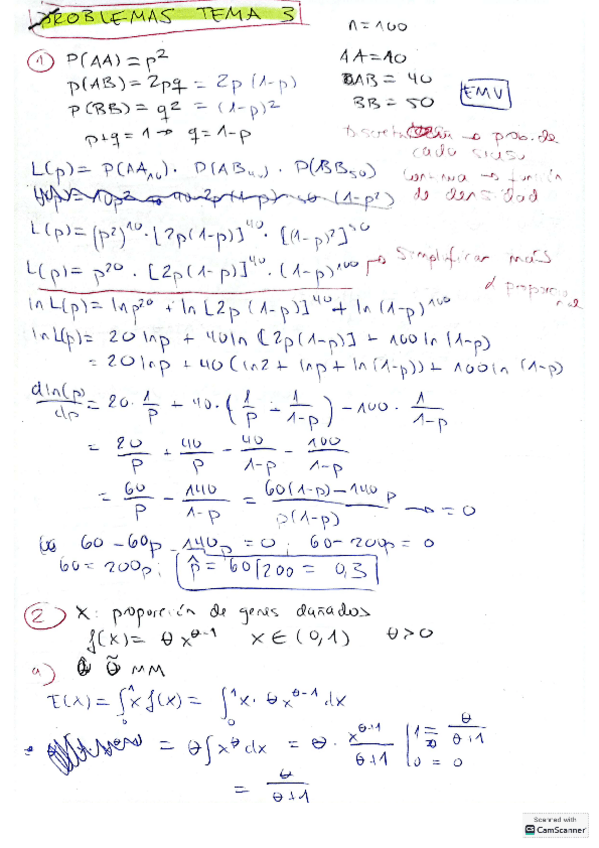 PROBLEMAS TEMA 3
n = 100
① P(AA) = p²
AA = 10
P(AB) = 2pq = 2p(1-p)
AB = 40
P(BB) = q² = (1-p)²
BB = 50
EMV
p+q = 1 → q = 1-p
Discreta → prob. de
cada suceso
L(p) = P(AA₁₀) · P(AB₄₀) · P(BB₅₀)
Continua → función
de densidad
L(p) = (p²)¹⁰ · [2p(1-p)]⁴⁰ · [(1-p)²]⁵⁰
L(p) = p²⁰ · [2p(1-p)]⁴⁰ · (1-p)¹⁰⁰
→ simplificar más
ln L(p) = ln p²⁰ + ln [2p(1-p)]⁴⁰ + ln (1-p)¹⁰⁰
ln L(p) = 20 ln p + 40 ln [2p(1-p)] + 100 ln (1-p)
= 20 ln p + 40 (ln 2 + ln p + ln(1-p)) + 100 ln (1-p)
dln(p)/dp = 20 · 1/p + 40 · (1/p - 1/1-p) - 100 · 1/1-p
= 20/p + 40/p - 40/1-p - 100/1-p
= 60/p - 140/1-p = 60(1-p) - 140p/p(1-p) → = 0
60 - 60p - 140p = 0 ; 60 - 200p = 0
60 = 200p ; p̂ = 60/200 = 0,3
② X: proporción de genes dañados
f(x) = θ x^θ-1 x ∈ (0,1) θ>0
a) θ̃ MM
E(X) = ∫₀¹ x f(x) = ∫₀¹ x · θ x^θ-1 dx
= θ ∫ x^θ dx = θ · x^θ+1/θ+1 | 1 = θ/θ+1
0 = 0
= θ/θ+1
Scanned with
CS CamScanner